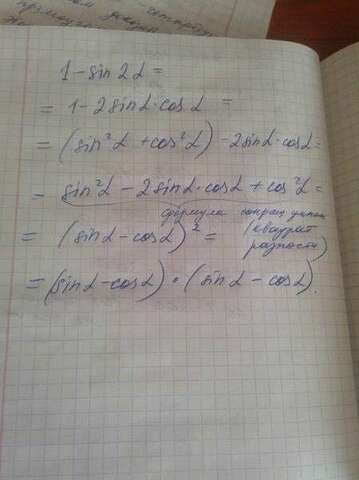 1 - sin 2α =
= 1 - 2sinα·cosα =
= (sin²α + cos²α) - 2sinα·cosα =
= sin²α - 2sinα·cosα + cos²α =
формула сокращ умнож
= (sinα - cosα)² = (квадрат
разности)
= (sinα - cosα) · (sinα - cosα).